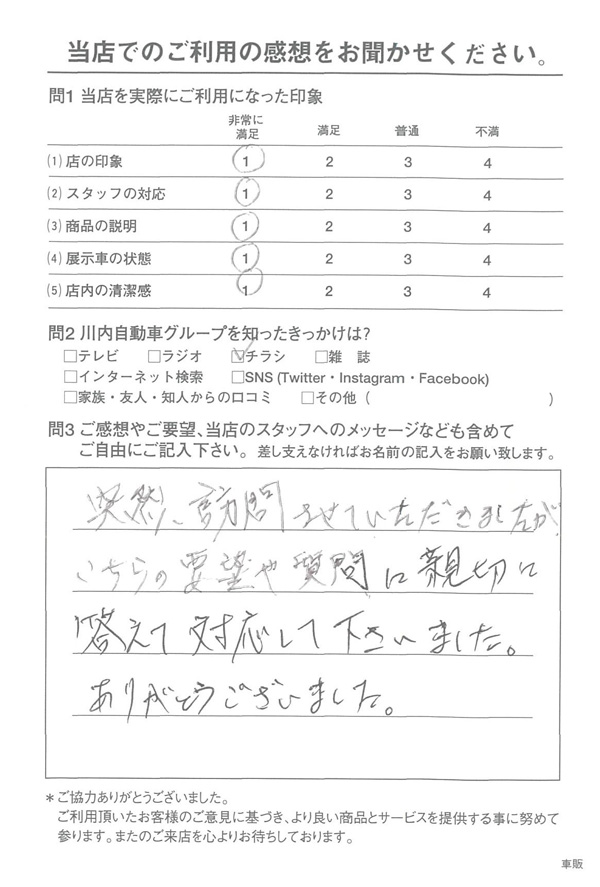 当店でのご利用の感想をお聞かせください。
問1 当店を実際にご利用になった印象
非常に満足 満足 普通 不満
(1) 店の印象 1 2 3 4
(2) スタッフの対応 1 2 3 4
(3) 商品の説明 1 2 3 4
(4) 展示車の状態 1 2 3 4
(5) 店内の清潔感 1 2 3 4
問2 川内自動車グループを知ったきっかけは?
□テレビ □ラジオ ☑チラシ □雑 誌
□インターネット検索 □SNS (Twitter・Instagram・Facebook)
□家族・友人・知人からの口コミ □その他 ( )
問3 ご感想やご要望、当店のスタッフへのメッセージなども含めて
ご自由にご記入下さい。差し支えなければお名前の記入をお願い致します。
突然、訪問させていただきましたが、
こちらの要望や質問に親切に
答えて対応して下さいました。
ありがとうございました。
*ご協力ありがとうございました。
ご利用頂いたお客様のご意見に基づき、より良い商品とサービスを提供する事に努めて
参ります。またのご来店を心よりお待ちしております。
車販